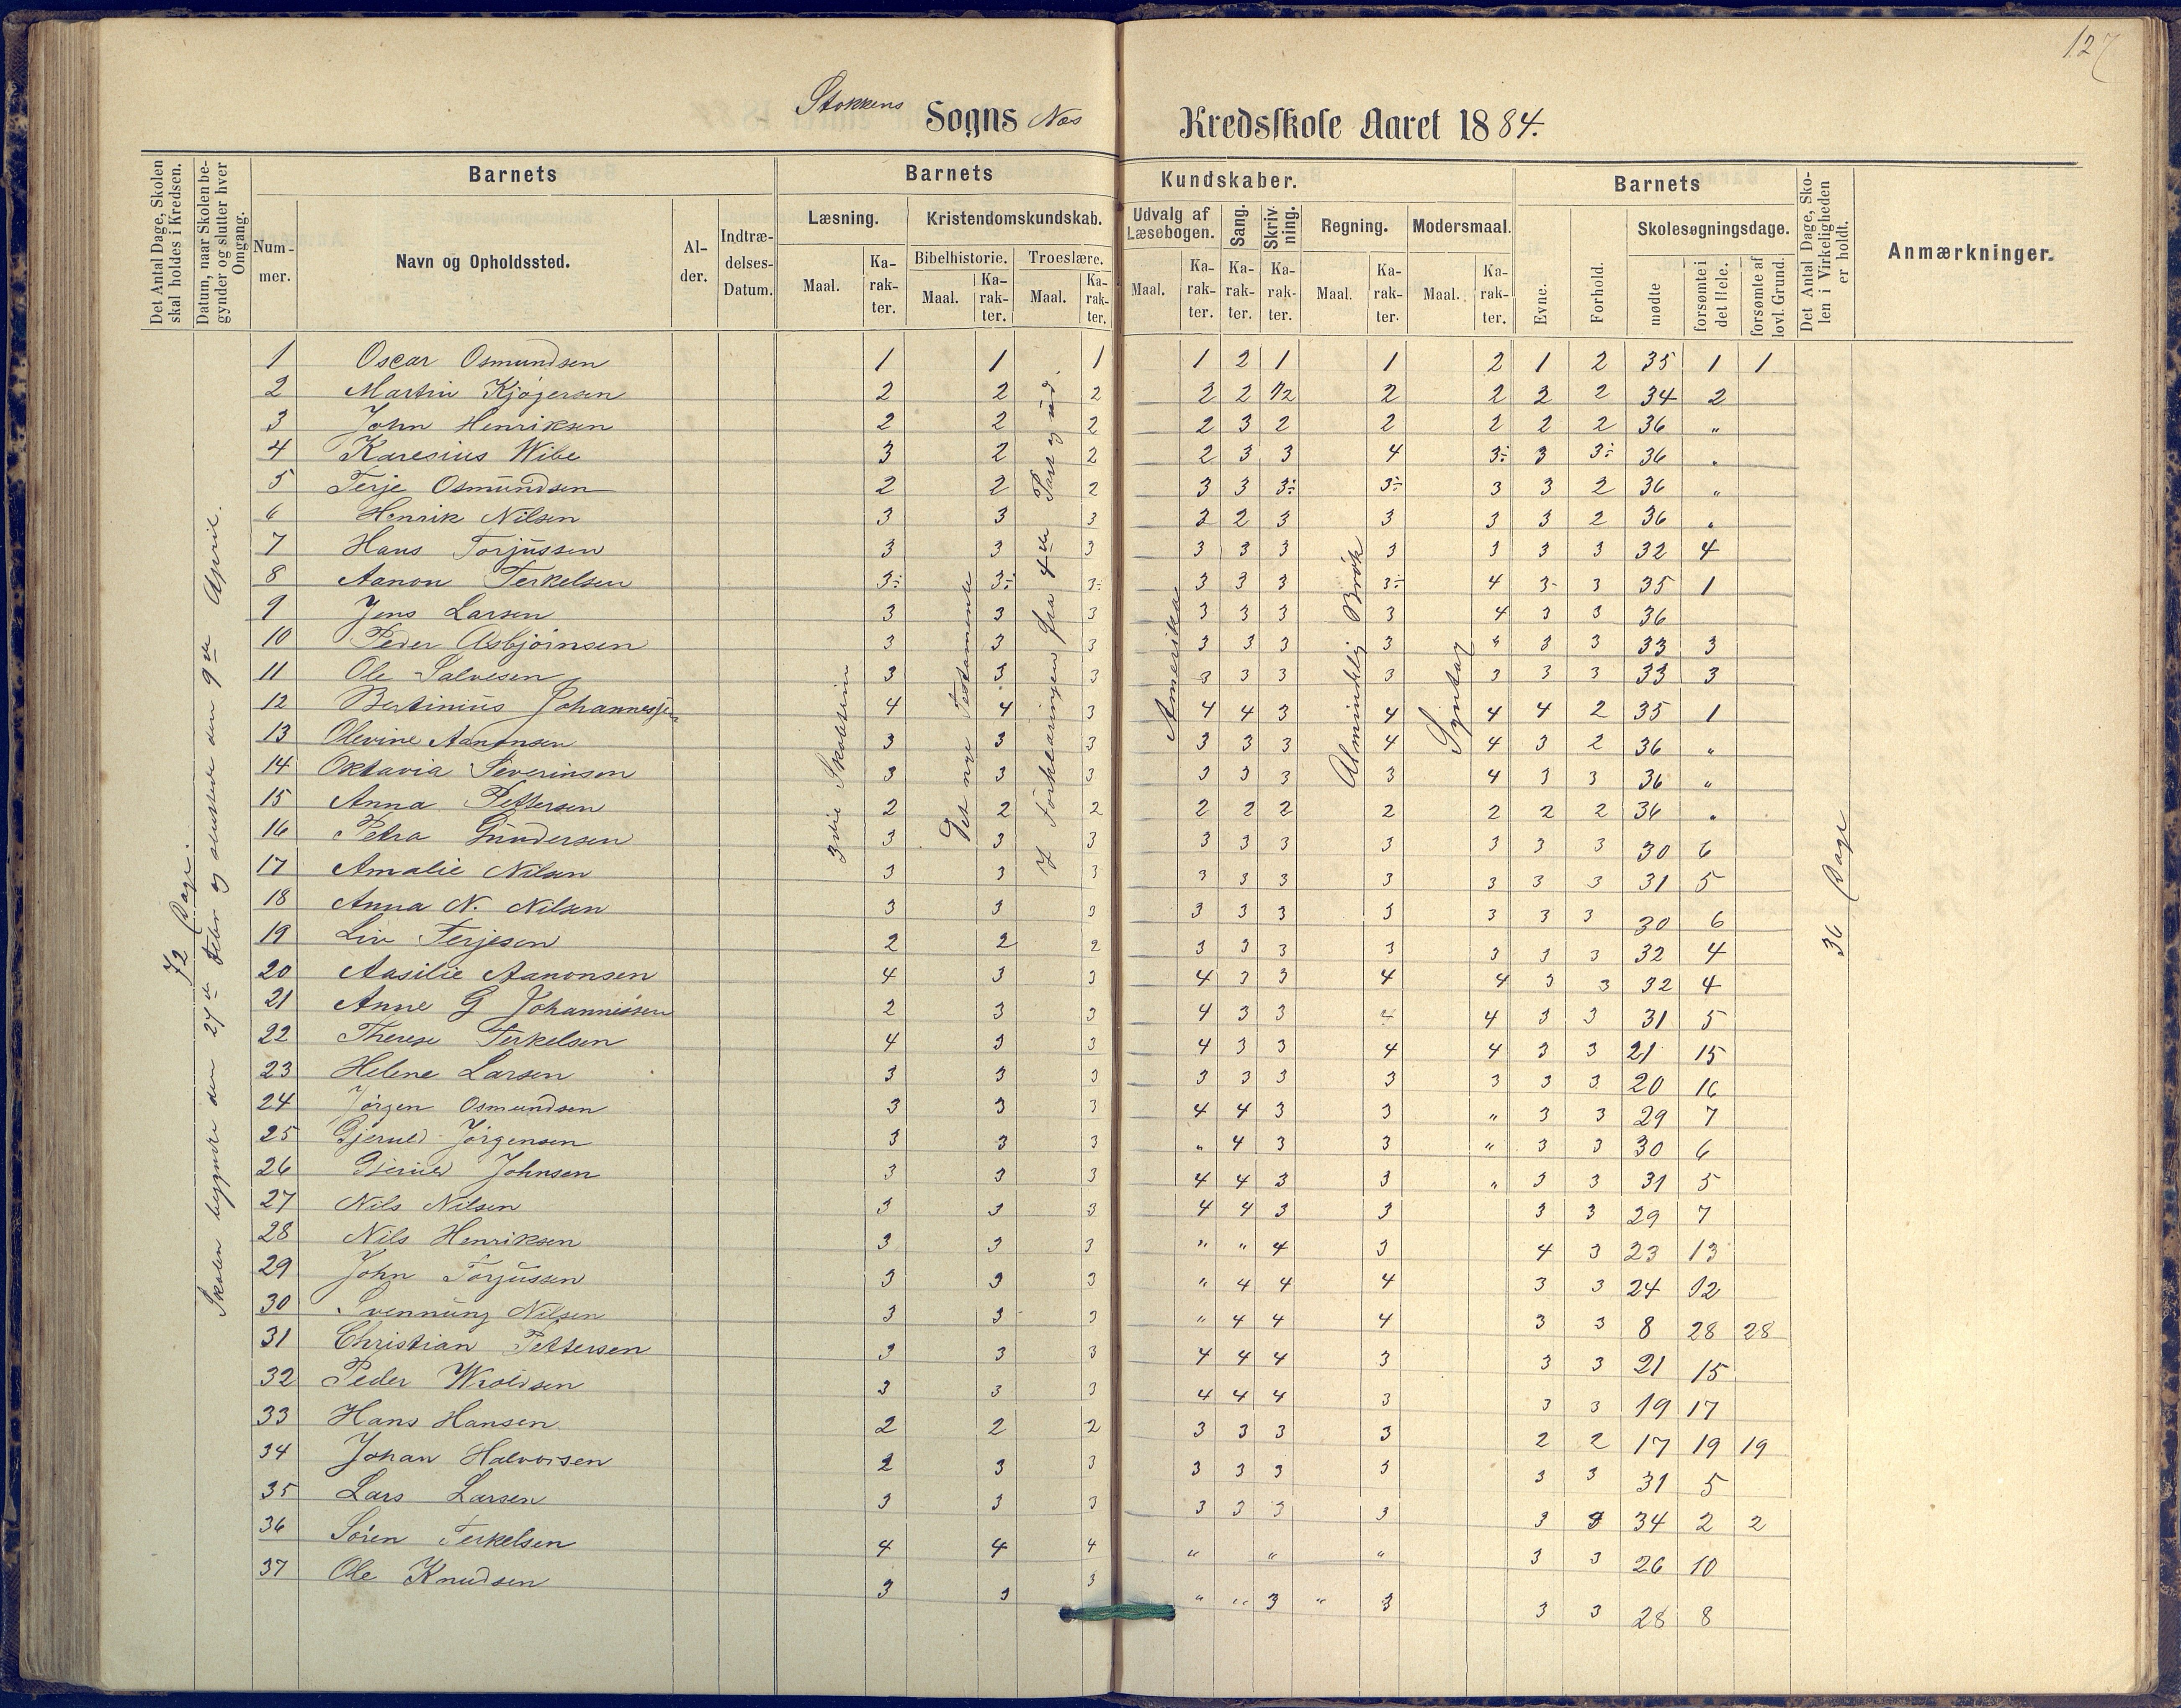 127
Stokkens Sogns Næs Kredsskole Aaret 1884.
Det Antal Dage, Skolen skal holdes i Kredsen.
Datum, naar Skolen begynder og slutter hver Omgang.
Barnets
Nummer.
Navn og Opholdssted.
Alder.
Indtrædelses-Datum.
Barnets Kundskaber.
Læsning.
Maal.
Karakter.
Kristendomskundskab.
Bibelhistorie.
Maal.
Karakter.
Troeslære.
Maal.
Karakter.
Udvalg af Læsebogen.
Maal.
Karakter.
Sang.
Karakter.
Skrivning.
Karakter.
Regning.
Maal.
Karakter.
Modersmaal.
Maal.
Karakter.
Barnets
Evne.
Forhold.
Skolesøgningsdage.
mødte
forsømte i det Hele.
forsømte af lovl. Grund.
Det Antal Dage, Skolen i Virkeligheden er holdt.
Anmærkninger.
72 Dage.
Skolen begyndte den 27de Febr og sluttede den 9de April.
3die Skoletrin
Det nye Testamente
I Forklaringen fra 4de Part og ud.
Amerika
Almindelig Brøk
Syntax
36 Dage
1 Oscar Osmundsen 1 1 1 1 2 1 1 2 1 2 35 1 1
2 Martin Kjøgersen 2 2 2 2 2 1/2 2 2 2 2 34 2
3 John Henriksen 2 2 2 2 3 2 2 2 2 2 36 "
4 Karesius Wibe 3 2 2 2 3 3 4 3÷ 3 3÷ 36 "
5 Terje Osmundsen 2 2 2 3 3 3÷ 3÷ 3 3 2 36 "
6 Henrik Nilsen 3 3 3 2 2 3 3 3 3 2 36 "
7 Hans Torjussen 3 3 3 3 3 3 3 3 3 3 32 4
8 Aanon Terkelsen 3÷ 3÷ 3÷ 3 3 3 3÷ 4 3- 3 35 1
9 Jens Larsen 3 3 3 3 3 3 3 4 3 3 36
10 Peder Asbjørnsen 3 3 3 3 3 3 3 " 3 3 33 3
11 Ole Salvesen 3 3 3 3 3 3 3 3 3 3 33 3
12 Bertinius Johannessen 4 4 3 4 4 3 4 4 4 2 35 1
13 Olevine Aanonsen 3 3 3 3 3 3 4 4 3 2 36 "
14 Oktavia Severinsen 3 3 3 3 3 3 3 4 3 3 36 "
15 Anna Pettersen 2 2 2 2 2 2 2 2 2 2 36 "
16 Petra Gundersen 3 3 3 3 3 3 3 3 3 3 30 6
17 Amalie Nilsen 3 3 3 3 3 3 3 3 3 3 31 5
18 Anna N. Nilsen 3 3 3 3 3 3 3 3 3 3 30 6
19 Liv Terjesen 2 2 2 3 3 3 3 3 3 3 32 4
20 Aasilie Aanonsen 4 3 3 4 3 3 4 4 3 3 32 4
21 Anne G Johannessen 2 3 3 4 3 3 4 4 3 3 31 5
22 Therese Terkelsen 4 3 3 4 3 3 4 4 3 3 21 15
23 Helene Larsen 3 3 3 3 3 3 3 3 3 3 20 16
24 Jörgen Osmundsen 3 3 3 4 4 3 3 " 3 3 29 7
25 Gjeruld Jörgensen 3 3 3 " 4 3 3 " 3 3 30 6
26 Gjeruld Johnsen 3 3 3 4 4 3 3 " 3 3 31 5
27 Nils Nilsen 3 3 3 4 4 3 3 3 3 29 7
28 Nils Henriksen 3 3 3 " " 4 3 4 3 23 13
29 John Torjussen 3 3 3 " 4 4 4 3 3 24 12
30 Svennung Nilsen 3 3 3 " 4 4 4 3 3 8 28 28
31 Christian Pettersen 3 3 3 4 4 4 3 3 3 21 15
32 Peder Wroldsen 3 3 3 4 4 4 3 3 3 19 17
33 Hans Hansen 2 2 2 3 3 3 3 2 2 17 19 19
34 Johan Halvorsen 2 3 3 3 3 3 3 3 3 31 5
35 Lars Larsen 3 3 3 3 3 3 3 3 3 34 2 2
36 Sören Terkelsen 4 4 4 " " " 3 3 26 10
37 Ole Knudsen 3 3 3 " " 3 " 3 3 3 28 8